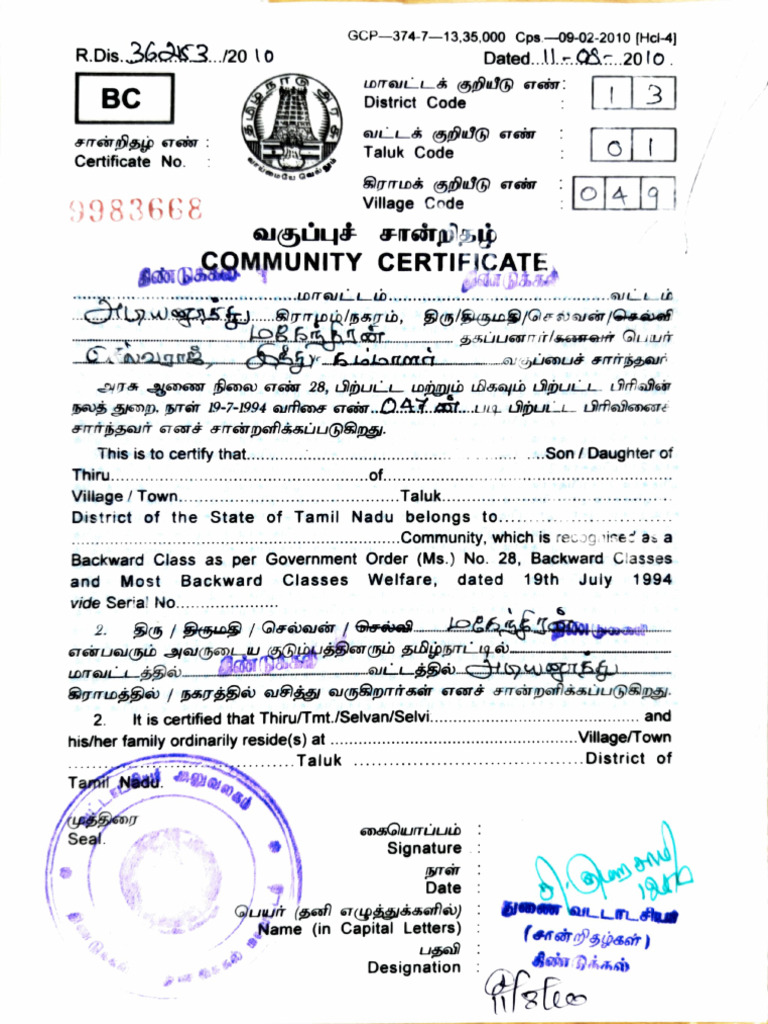 GCP—374-7—13,35,000 Cps.—09-02-2010 [Hcl-4]
R.Dis. 36253/2010 Dated 11-08-2010.
BC
தமிழ்நாடு அரசு
வாய்மையே வெல்லும்
மாவட்டக் குறியீடு எண் :
District Code : 13
சான்றிதழ் எண் :
Certificate No. :
வட்டக் குறியீடு எண் :
Taluk Code : 01
கிராமக் குறியீடு எண் :
Village Code : 049
9983668
வகுப்புச் சான்றிதழ்
COMMUNITY CERTIFICATE
திண்டுக்கல் மாவட்டம் திண்டுக்கல் வட்டம்
அடியனூத்து கிராமம்/நகரம், திரு/திருமதி/செல்வன்/செல்வி
மகேந்திரன் தகப்பனார்/கணவர் பெயர்
இந்து கம்மாளர் வகுப்பைச் சார்ந்தவர்
அரசு ஆணை நிலை எண் 28, பிற்பட்ட மற்றும் மிகவும் பிற்பட்ட பிரிவின்
நலத் துறை, நாள் 19-7-1994 வரிசை எண் 047ன் படி பிற்பட்ட பிரிவினைச்
சார்ந்தவர் எனச் சான்றளிக்கப்படுகிறது.
This is to certify that Son / Daughter of
Thiru of
Village / Town Taluk
District of the State of Tamil Nadu belongs to
Community, which is recognised as a
Backward Class as per Government Order (Ms.) No. 28, Backward Classes
and Most Backward Classes Welfare, dated 19th July 1994
vide Serial No.
2. திரு / திருமதி / செல்வன் / செல்வி மகேந்திரன்
என்பவரும் அவருடைய குடும்பத்தினரும் தமிழ்நாட்டில் திண்டுக்கல்
மாவட்டத்தில் திண்டுக்கல் வட்டத்தில் அடியனூத்து
கிராமத்தில் / நகரத்தில் வசித்து வருகிறார்கள் எனச் சான்றளிக்கப்படுகிறது.
2. It is certified that Thiru/Tmt./Selvan/Selvi and
his/her family ordinarily reside(s) at Village/Town
Taluk District of
Tamil Nadu.
வட்டாட்சியர் அலுவலகம்
திண்டுக்கல்
முத்திரை
Seal.
கையொப்பம் :
Signature :
நாள் :
Date :
பெயர் (தனி எழுத்துக்களில்) :
Name (in Capital Letters) :
பதவி :
Designation :
துணை வட்டாட்சியர்
(சான்றிதழ்கள்)
திண்டுக்கல்